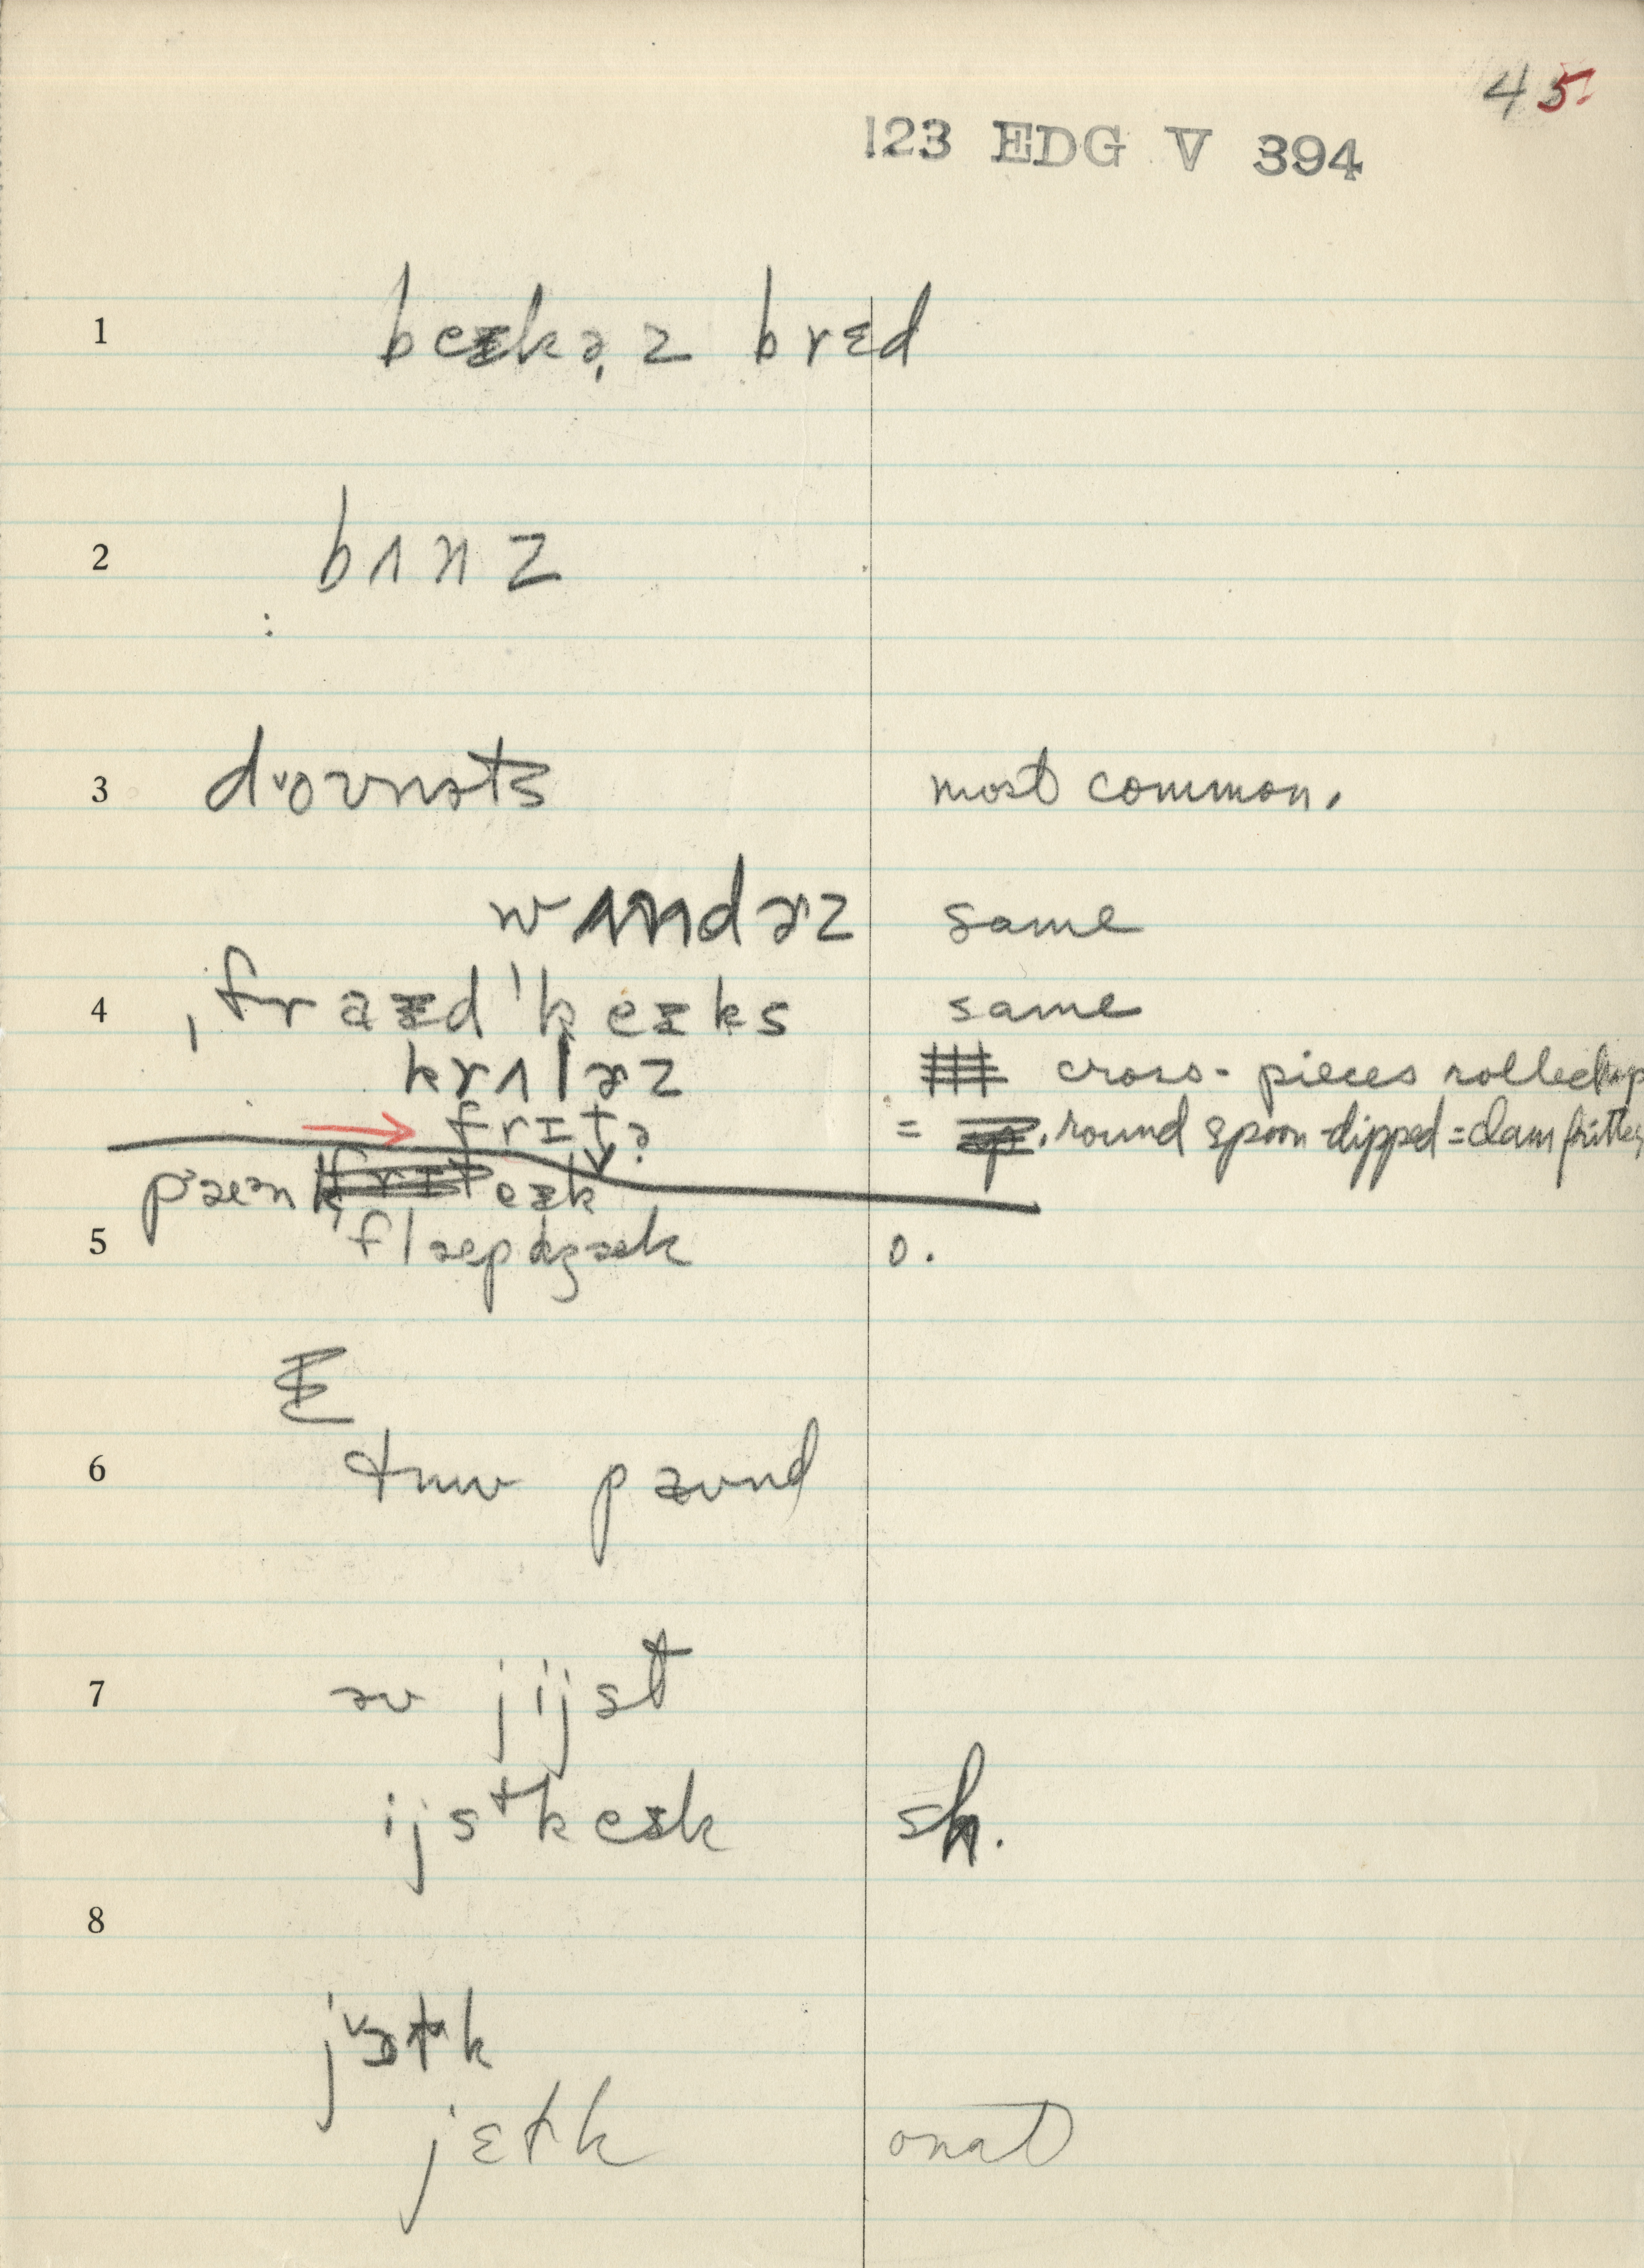 45.
123 EDG V 394
1 beɪkə̨z brɛd
2 bʌnz
:
3 dˇoʊnəts most common.
wʌndɚz same
4 ˌfraɪd ˈkeɪks same
krʌlɚz cross-pieces rolled up
frɪtə = round spoon-dipped = clam fritters
pæᵊnkeɪk
5 ˈflæpdʒæk o.
6 tuw paʊnd
7 əv jijst
ijstkeɪk sh.
8
jˇɔlk
jɛlk onat